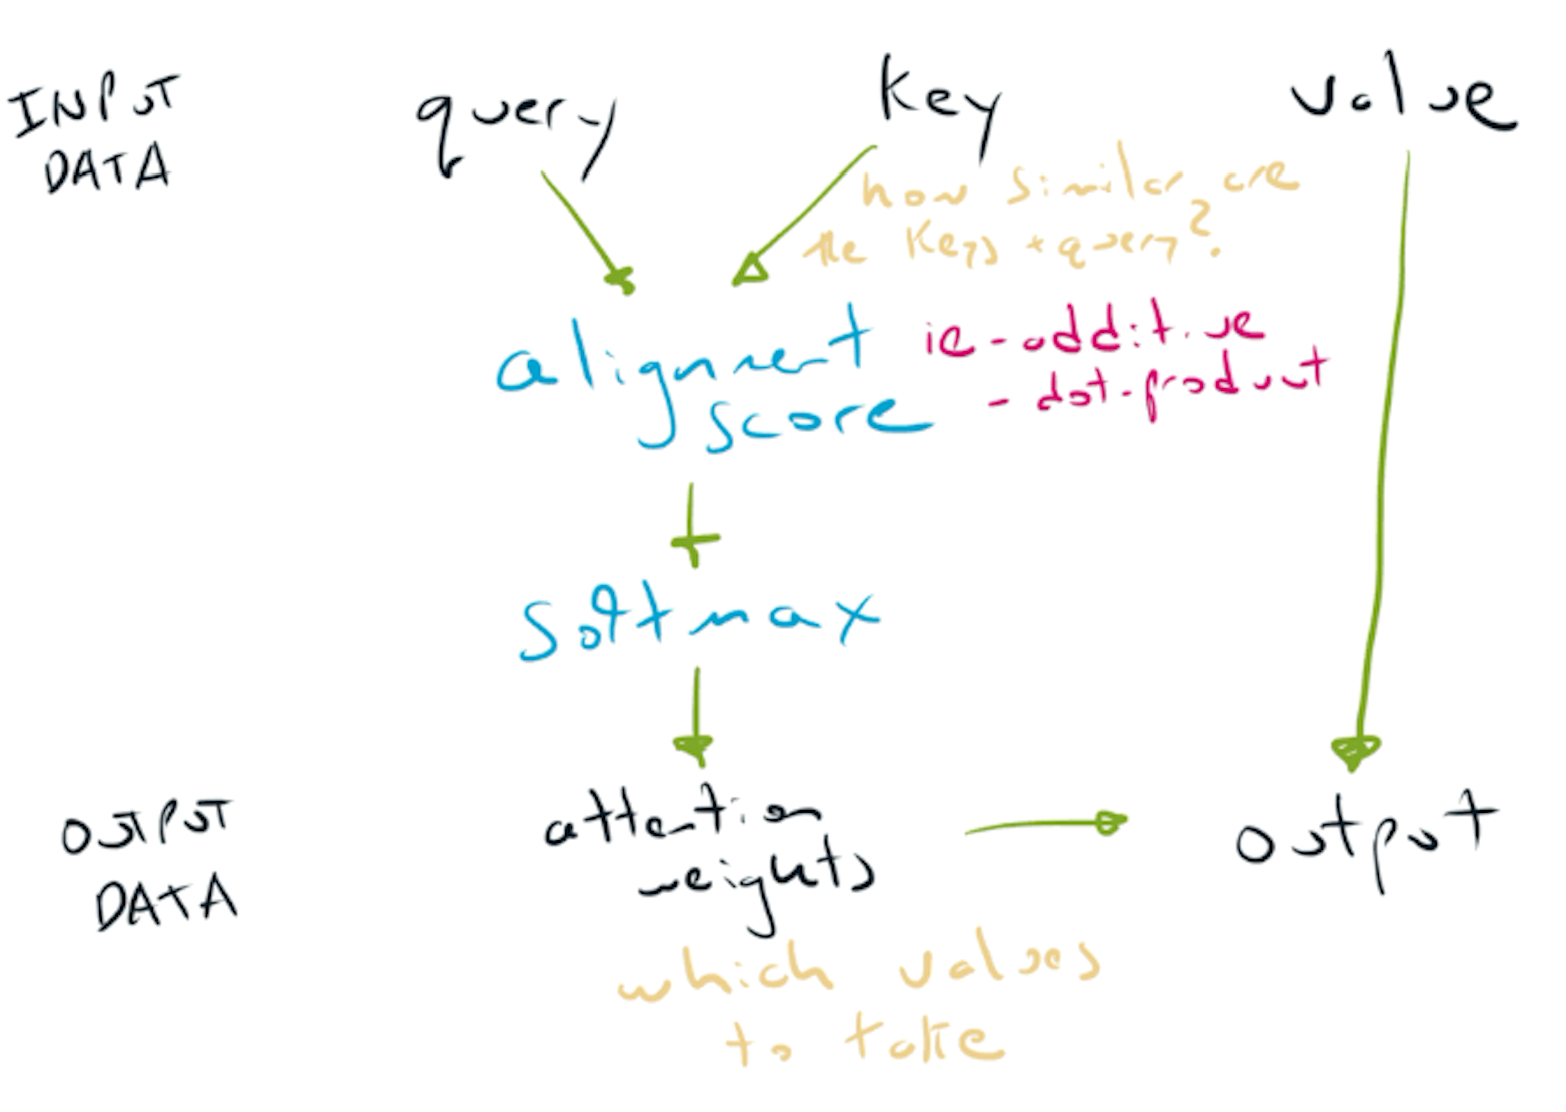 INPUT
DATA
query
key
value
how similar are
the keys + query?
alignment
score
ie - additive
- dot-product
softmax
OUTPUT
DATA
attention
weights
output
which values
to take